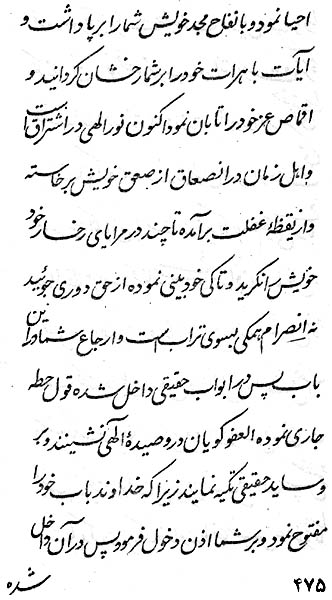 احیا نمود و با نفاح مجد خویش شما را بر پا داشت و
آیات باهرات خود را بر شما رخشان گردانید و
اقماص عز خود را تابان نمود اکنون نور الهی در اشتراق است
و اهل زمان در انصعاق از صعق خویش برخاسته
و از یقظهٔ غفلت برآمده تا چند در مرایای رخسار خود
خویش را نگرید و تا کی خودبینی نموده از حق دوری جوئید
نه انصرام همگی بسوی تراب است و ارجاع شما در این
باب پس در ابواب حقیقی داخل شده قول حطه
جاری نموده العفو گویان در وصیدهٔ الهی نشینند و بر
وساید حقیقی تکیه نمایند زیرا که خداوند باب خود را
مفتوح نمود و بر شما اذن دخول فرمود پس در آن داخل
شده
۴۷۵